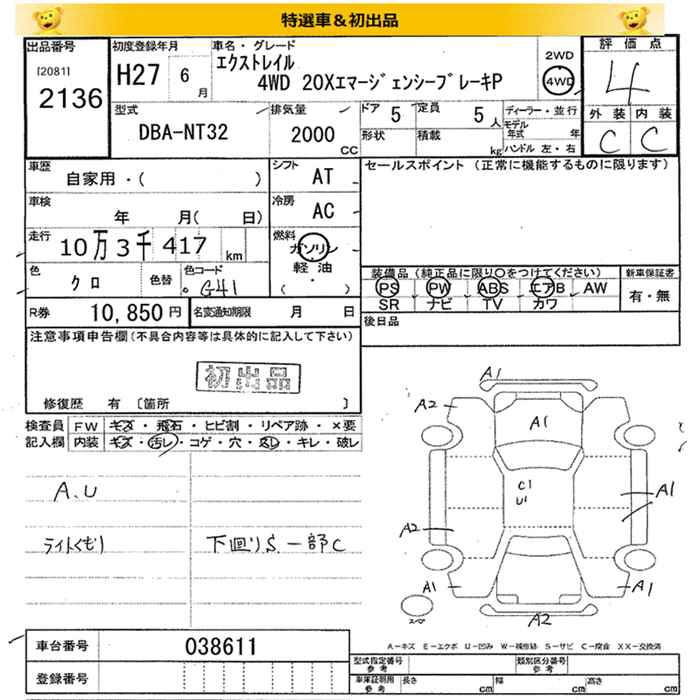 特選車＆初出品
出品番号
[2081]
2136
初度登録年月
H27 6月
車名・グレード
エクストレイル
4WD 20XエマージェンシーブレーキP
2WD
4WD
評価点
4
外装 内装
C C
型式
DBA-NT32
排気量
2000
CC
ドア 5
定員 5人
形状
積載
kg
ディーラー・並行
モデル年式 年
ハンドル 左・右
車歴
自家用・( )
シフト AT
セールスポイント（正常に機能するものに限ります）
車検
年 月( 日)
冷房 AC
走行
10万3千417km
燃料
ガソリン
軽油
・( )
色
クロ
色替
色カラーコード
G41
装備品（純正品に限り○をつけてください）
新車保証書
PS PW ABS エアB AW
有・無
SR ナビ TV カワ
R券 10,850円
名変通知期限 月 日
後日品
注意事項申告欄(不具合内容等は具体的に記入して下さい)
初出品
修復歴 有〔箇所 〕
検査員記入欄
FW キズ・飛石・ヒビ割・リペア跡・×要
内装 キズ・汚レ・コゲ・穴・スレ・キレ・破レ
A.U
ライトくもり
下回りS.一部C
A1
A2
A1
C1
U1
A1
A2
A1
A1
A2
スペア
車台番号 038611
登録番号
A－キズ E－エクボ U－凹み W－補修跡 S－サビ C－腐食 XX－交換済
型式指定番号
参考
類別区分番号
参考
車庫証明用
参考
長さ cm
幅 cm
高さ cm